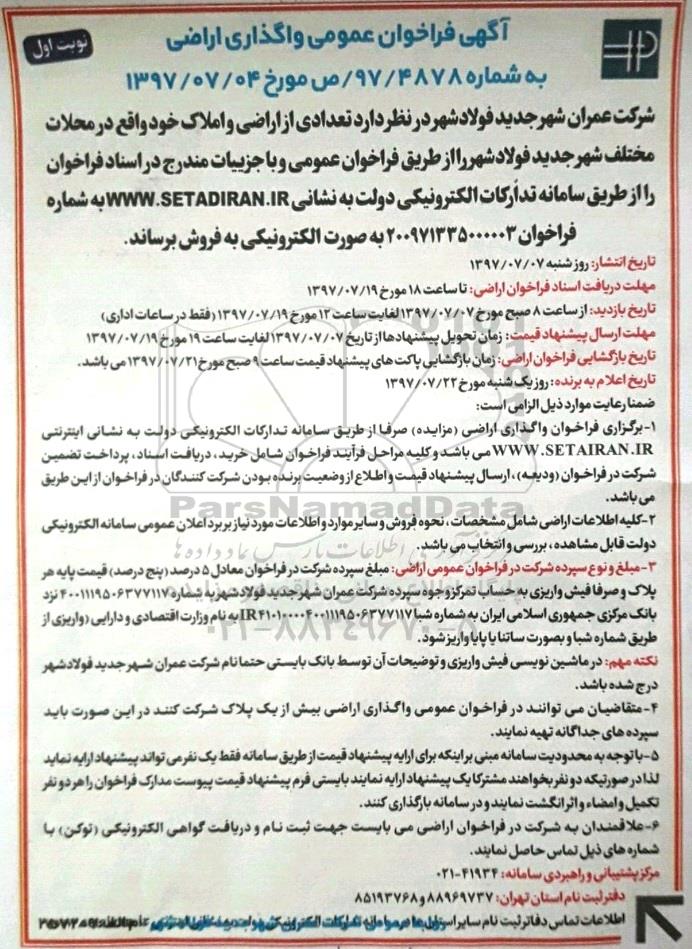 آگهی فراخوان عمومی واگذاری اراضی
نوبت اول
به شماره ۹۷/۴۸۷۸/ص مورخ ۱۳۹۷/۰۷/۰۴
شرکت عمران شهر جدید فولادشهر در نظر دارد تعدادی از اراضی و املاک خود واقع در محلات
مختلف شهر جدید فولادشهر را از طریق فراخوان عمومی و با جزییات مندرج در اسناد فراخوان
را از طریق سامانه تدارکات الکترونیکی دولت به نشانی WWW.SETADIRAN.IR به شماره
فراخوان ۲۰۰۹۷۱۳۳۵۰۰۰۰۰۳ به صورت الکترونیکی به فروش برساند.
تاریخ انتشار: روز شنبه ۱۳۹۷/۰۷/۰۷
مهلت دریافت اسناد فراخوان اراضی: تا ساعت ۱۸ مورخ ۱۳۹۷/۰۷/۱۹
تاریخ بازدید: از ساعت ۸ صبح مورخ ۱۳۹۷/۰۷/۰۷ لغایت ساعت ۱۲ مورخ ۱۳۹۷/۰۷/۱۹ (فقط در ساعات اداری)
مهلت ارسال پیشنهاد قیمت: زمان تحویل پیشنهادها از تاریخ ۱۳۹۷/۰۷/۰۷ لغایت ساعت ۱۹ مورخ ۱۳۹۷/۰۷/۱۹
تاریخ بازگشایی فراخوان اراضی: زمان بازگشایی پاکت های پیشنهاد قیمت ساعت ۹ صبح مورخ ۱۳۹۷/۰۷/۲۱ می باشد.
تاریخ اعلام به برنده: روز یک شنبه مورخ ۱۳۹۷/۰۷/۲۲
ضمنا رعایت موارد ذیل الزامی است:
۱-برگزاری فراخوان واگذاری اراضی (مزایده) صرفا از طریق سامانه تدارکات الکترونیکی دولت به نشانی اینترنتی
WWW.SETAIRAN.IR می باشد و کلیه مراحل فرآیند فراخوان شامل خرید، دریافت اسناد، پرداخت تضمین
شرکت در فراخوان (ودیعه)، ارسال پیشنهاد قیمت و اطلاع از وضعیت برنده بودن شرکت کنندگان در فراخوان از این طریق
می باشد.
۲-کلیه اطلاعات اراضی شامل مشخصات، نحوه فروش و سایر موارد و اطلاعات مورد نیاز بر برد اعلان عمومی سامانه الکترونیکی
دولت قابل مشاهده، بررسی و انتخاب می باشد.
۳-مبلغ و نوع سپرده شرکت در فراخوان عمومی اراضی: مبلغ سپرده شرکت در فراخوان معادل ۵ درصد (پنج درصد) قیمت پایه هر
پلاک و صرفا فیش واریزی به حساب تمرکز وجوه سپرده شرکت عمران شهر جدید فولادشهر به شماره ۴۰۰۱۱۱۹۵۰۶۳۷۷۱۱۷ نزد
بانک مرکزی جمهوری اسلامی ایران به شماره شبا IR۴۱۰۱۰۰۰۰۴۰۰۱۱۱۹۵۰۶۳۷۷۱۱۷ به نام وزارت اقتصادی و دارایی (واریزی از
طریق شماره شبا و بصورت ساتنا یا پایا واریز شود.
نکته مهم: در ماشین نویسی فیش واریزی و توضیحات آن توسط بانک بایستی حتما نام شرکت عمران شهر جدید فولادشهر
درج شده باشد.
۴-متقاضیان می توانند در فراخوان عمومی واگذاری اراضی بیش از یک پلاک شرکت کنند در این صورت باید
سپرده های جداگانه تهیه نمایند.
۵-با توجه به محدودیت سامانه مبنی بر اینکه برای ارایه پیشنهاد قیمت از طریق سامانه فقط یک نفر می تواند پیشنهاد ارایه نماید
لذا در صورتیکه دو نفر بخواهند مشترکا یک پیشنهاد ارایه نمایند بایستی فرم پیشنهاد قیمت پیوست مدارک فراخوان را هر دو نفر
تکمیل و امضاء و اثر انگشت نمایند و در سامانه بارگذاری کنند.
۶-علاقمندان به شرکت در فراخوان اراضی می بایست جهت ثبت نام و دریافت گواهی الکترونیکی (توکن) با
شماره های ذیل تماس حاصل نمایند.
مرکز پشتیبانی و راهبردی سامانه: ۴۱۹۳۴-۰۲۱
دفتر ثبت نام استان تهران: ۸۸۹۶۹۷۳۷ و ۸۵۱۹۳۷۶۸
اطلاعات تماس دفاتر ثبت نام سایر استان ها در سامانه
ParsNamadData
۰۲۱-۸۸۳۴۹۶۷۰-۵